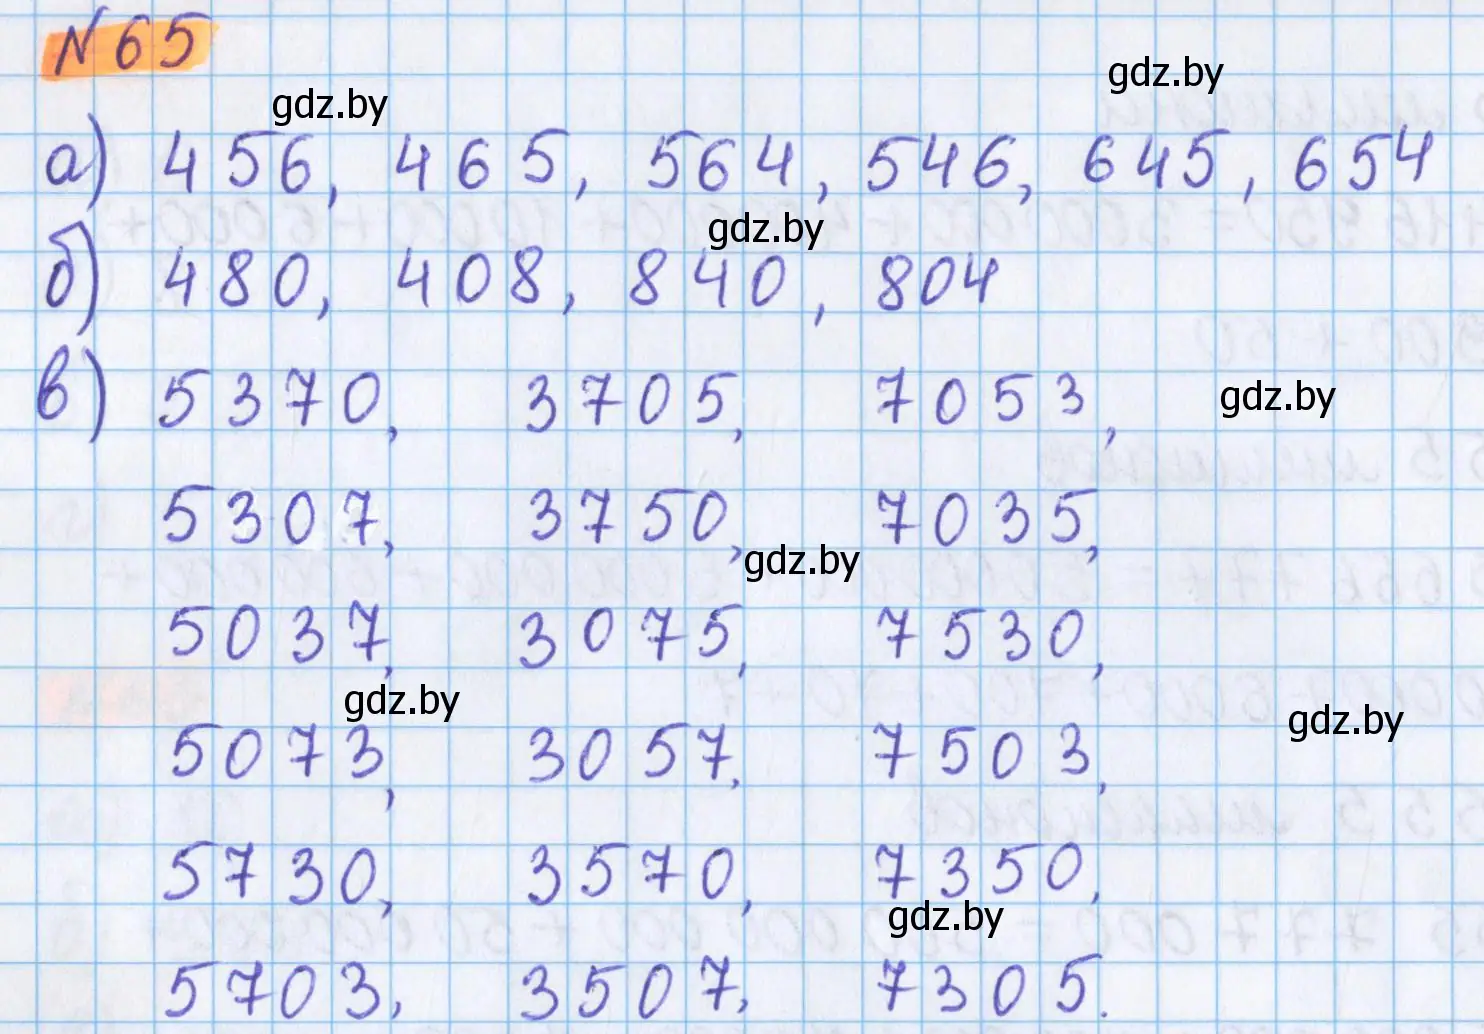 №65
gdz.by
gdz.by
а) 456, 465, 564, 546, 645, 654
gdz.by
б) 480, 408, 840, 804
в) 5370, 3705, 7053,
gdz.by
5307, 3750, 7035,
gdz.by
5037, 3075, 7530,
gdz.by
gdz.by
5073, 3057, 7503,
5730, 3570, 7350,
gdz.by
5703, 3507, 7305.